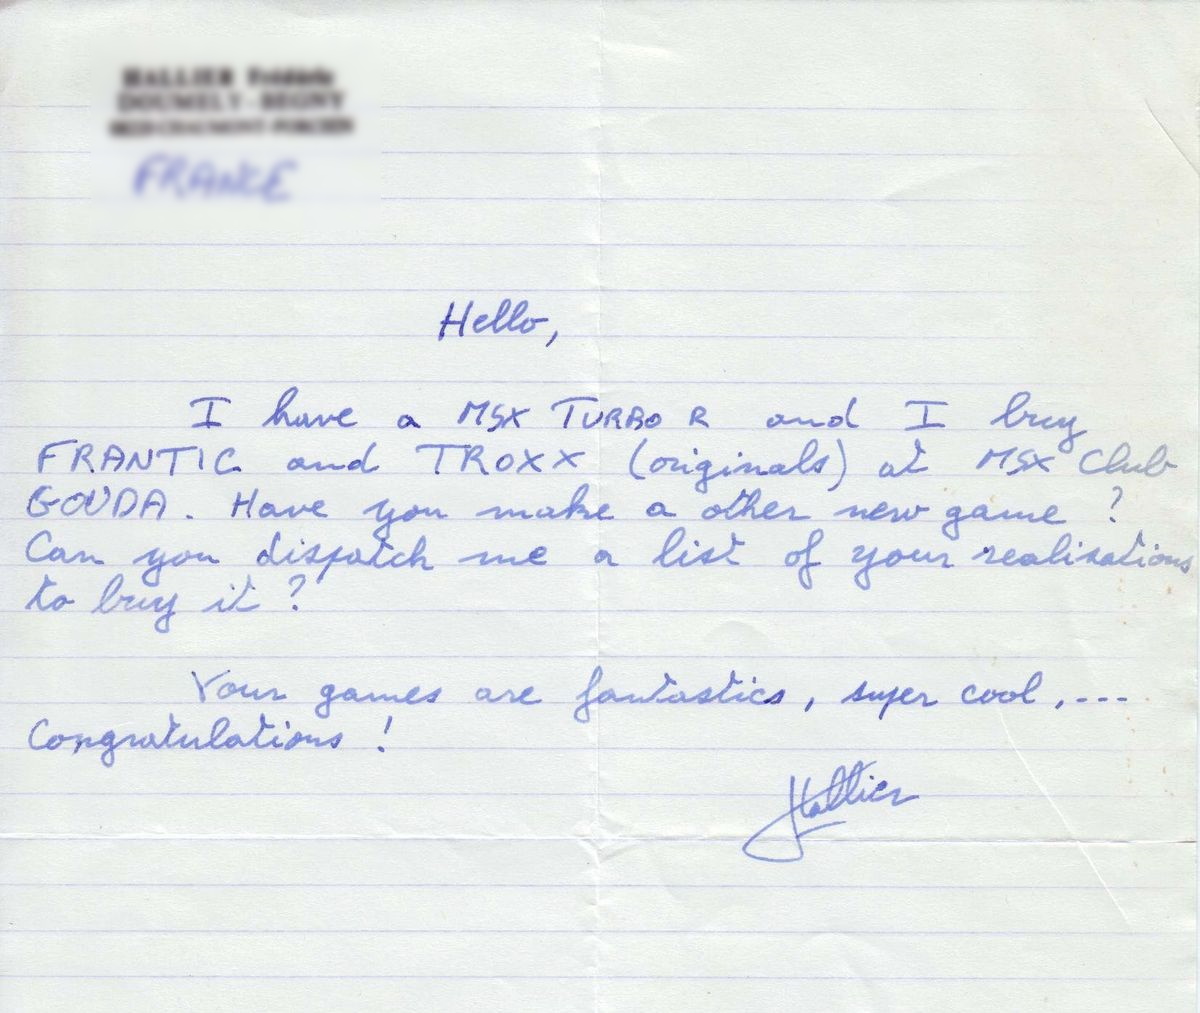 FRANCE
Hello,
I have a MSX TURBO R and I buy
FRANTIC and TROXX (originals) at MSX Club
GOUDA. Have you make a other new game ?
Can you dispatch me a list of your realisations
to buy it ?
Your games are fantastics, super cool, ---
Congratulations !
Hallier